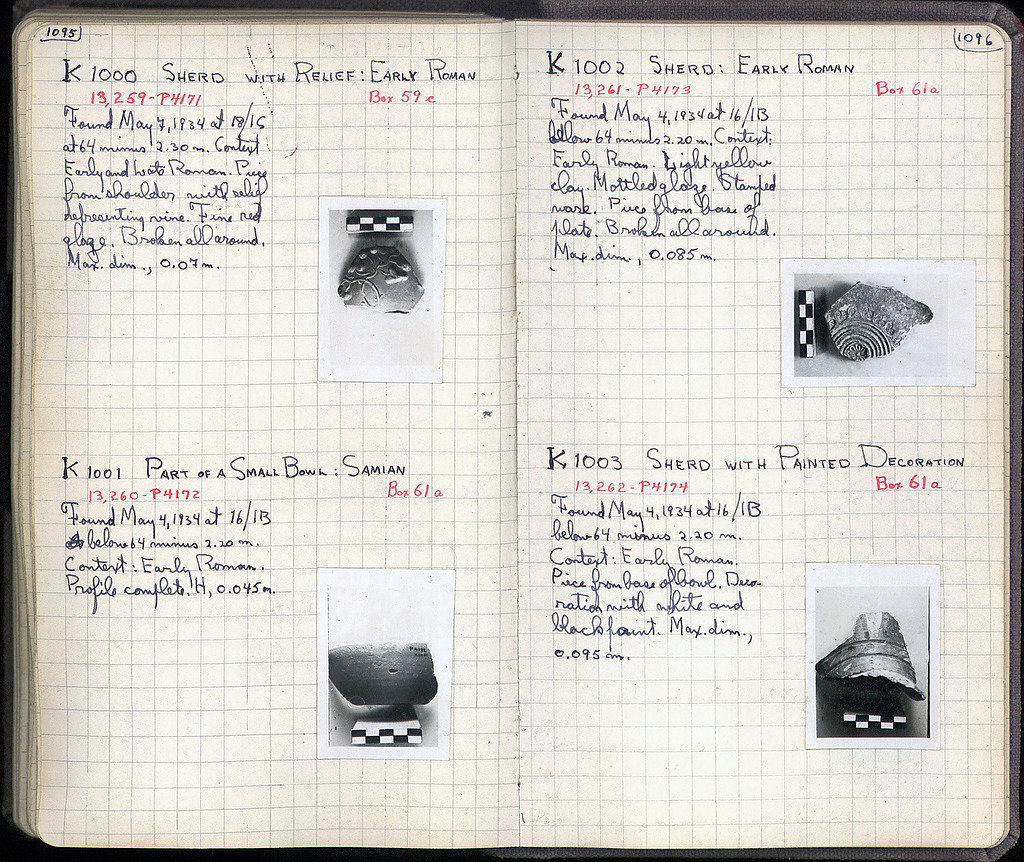 1095
K 1000 SHERD WITH RELIEF: EARLY ROMAN
13,259-P4171 Box 59 c
Found May 7, 1934 at 18/IΣ
at 64 minus 2.30 m. Context:
Early and Late Roman. Piece
from shoulder with relief
representing vine. Fine red
glaze. Broken all around.
Max. dim., 0.07 m.
K 1001 PART OF A SMALL BOWL: SAMIAN
13,260-P4172 Box 61 a
Found May 4, 1934 at 16/IB
below 64 minus 2.20 m.
Context: Early Roman.
Profile complete. H, 0.045 m.
1096
K 1002 SHERD: EARLY ROMAN
13,261-P4173 Box 61a
Found May 4, 1934 at 16/IB
below 64 minus 2.20 m. Context:
Early Roman. Light yellow
clay. Mottled glaze. Stamped
ware. Piece from base of
plate. Broken all around.
Max. dim., 0.085 m.
K 1003 SHERD WITH PAINTED DECORATION
13,262-P4174 Box 61a
Found May 4, 1934 at 16/IB
below 64 minus 2.20 m.
Context: Early Roman.
Piece from base of bowl. Deco-
ration with white and
black paint. Max. dim.,
0.095 m.